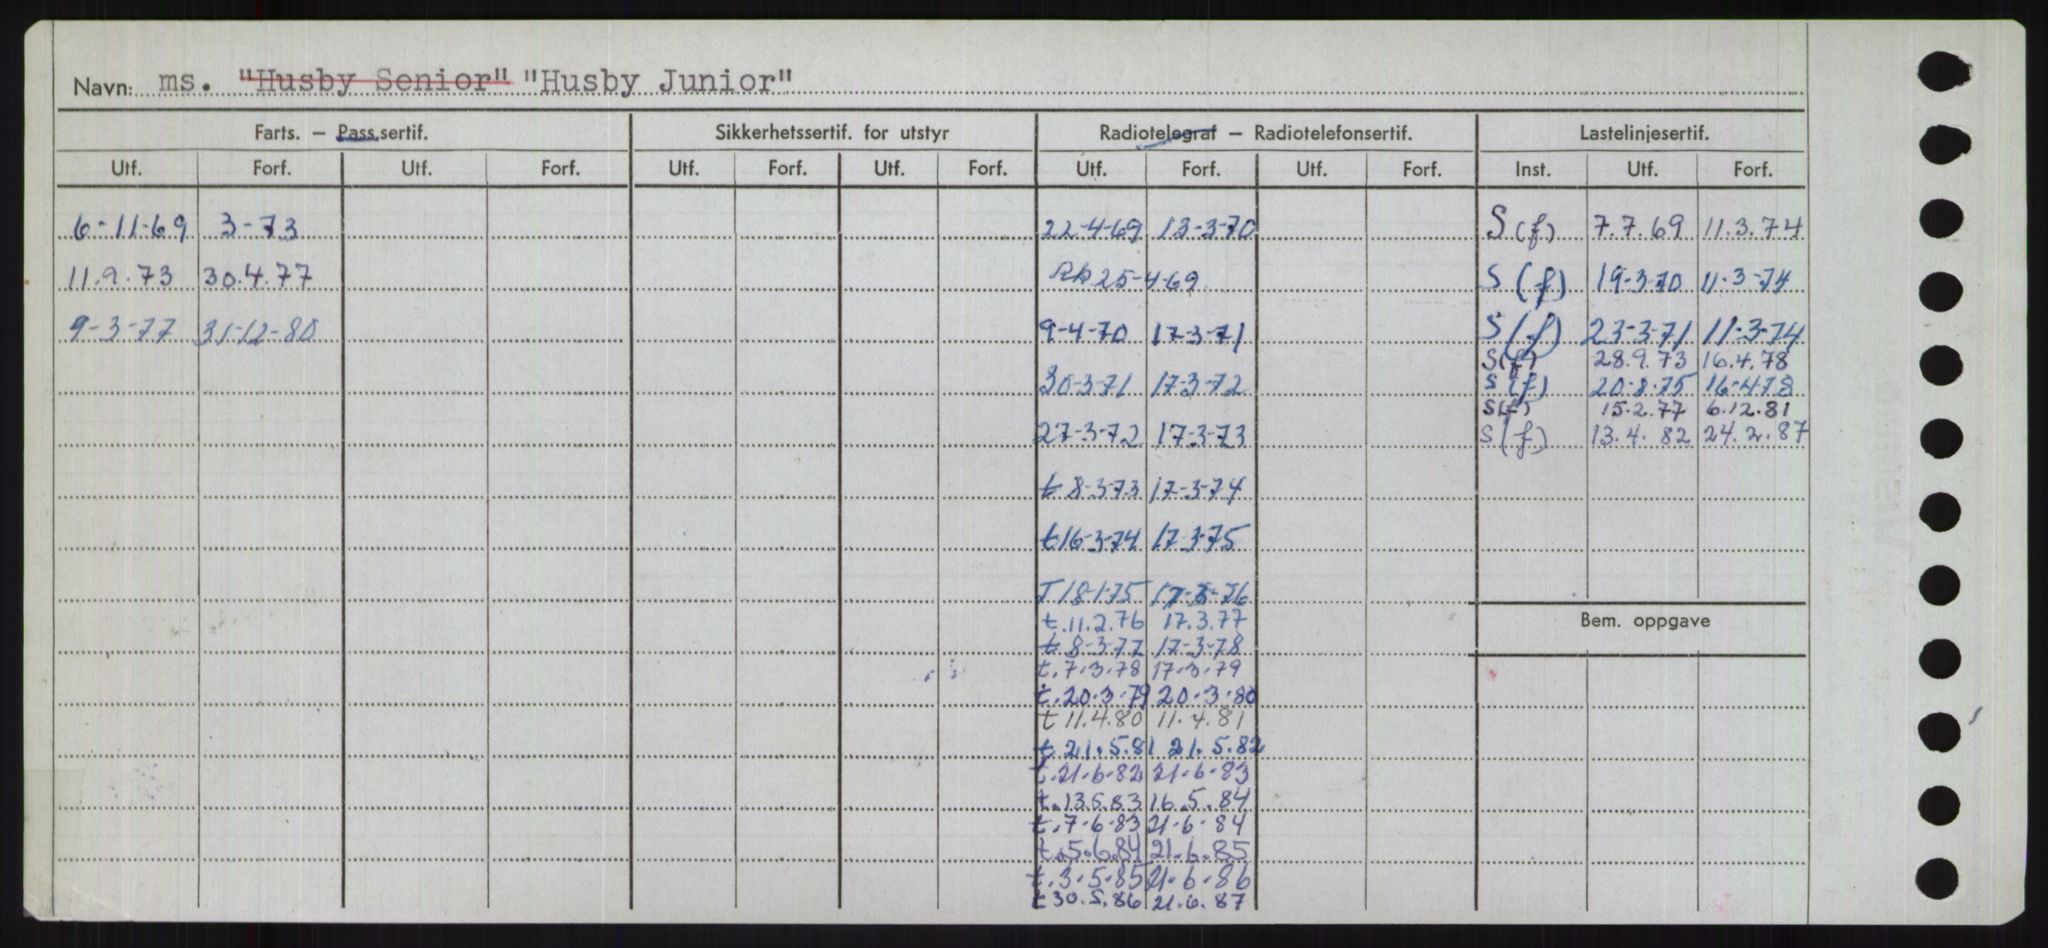 Navn: ms. "Husby Senior" "Husby Junior"
Farts. – Pass.sertif. Sikkerhetssertif. for utstyr Radiotelegraf – Radiotelefonsertif. Lastelinjesertif.
Utf. Forf. Utf. Forf. Utf. Forf. Utf. Forf. Utf. Forf. Utf. Forf. Inst. Utf. Forf.
6-11-69 3-73 22-4-69 13-3-70 S(f) 7.7.69 11.3.74
11.9.73 30.4.77 25-4-69 S(f) 19-3-70 11-3-74
9-3-77 31-12-80 9-4-70 17-3-71 S(f) 23-3-71 11-3-74
S(f) 28.9.73 16.4.78
30-3-71 17-3-72 S(f) 20-8-75 16-4-78
S(f) 15.2.77 6.12.81
27-3-72 17-3-73 S(f) 13.4.82 24.2.87
t 8-3-73 17-3-74
t 16-3-74 17-3-75
T 18-1-75 17-3-76
Bem. oppgave
t. 11.2.76 17.3.77
t 8-3-77 17-3-78
t. 7.3.78 17.3.79
t. 20.3.79 20.3.80
t 11.4.80 11.4.81
t. 21.5.81 21.5.82
t. 21.6.82 21.6.83
t. 13.5.83 16.5.84
t. 7.6.83 21.6.84
t. 5.6.84 21.6.85
t. 3.5.85 21.6.86
t 30.5.86 21.6.87